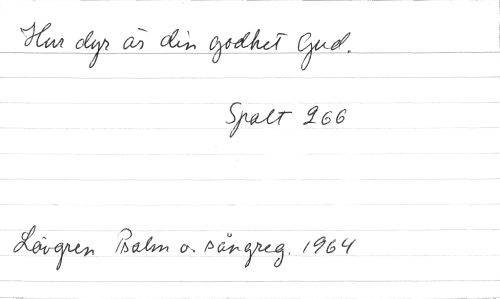 Hur dyr är din godhet Gud.
Spalt 266
Lövgren Psalm o. sångreg. 1964